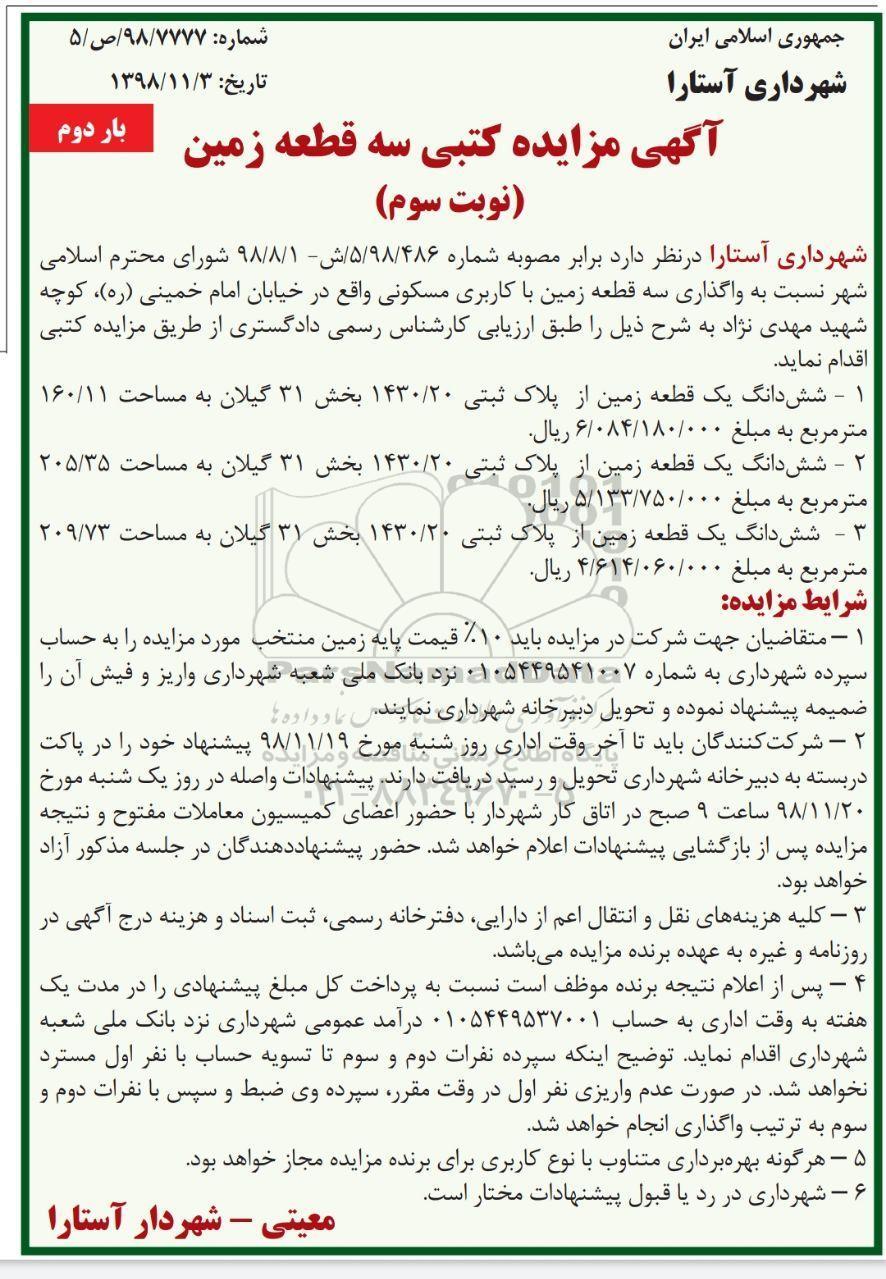 جمهوری اسلامی ایران
شهرداری آستارا
شماره: ۹۸/۷۷۷۷/ص/۵
تاریخ: ۱۳۹۸/۱۱/۳
بار دوم
آگهی مزایده کتبی سه قطعه زمین
(نوبت سوم)
شهرداری آستارا درنظر دارد برابر مصوبه شماره ۵/۹۸/۴۸۶/ش- ۹۸/۸/۱ شورای محترم اسلامی
شهر نسبت به واگذاری سه قطعه زمین با کاربری مسکونی واقع در خیابان امام خمینی (ره)، کوچه
شهید مهدی نژاد به شرح ذیل را طبق ارزیابی کارشناس رسمی دادگستری از طریق مزایده کتبی
اقدام نماید.
۱ - شش‌دانگ یک قطعه زمین از پلاک ثبتی ۱۴۳۰/۲۰ بخش ۳۱ گیلان به مساحت ۱۶۰/۱۱
مترمربع به مبلغ ۶/۰۸۴/۱۸۰/۰۰۰ ریال.
۲ - شش‌دانگ یک قطعه زمین از پلاک ثبتی ۱۴۳۰/۲۰ بخش ۳۱ گیلان به مساحت ۲۰۵/۳۵
مترمربع به مبلغ ۵/۱۳۳/۷۵۰/۰۰۰ ریال.
۳ - شش‌دانگ یک قطعه زمین از پلاک ثبتی ۱۴۳۰/۲۰ بخش ۳۱ گیلان به مساحت ۲۰۹/۷۳
مترمربع به مبلغ ۴/۶۱۴/۰۶۰/۰۰۰ ریال.
شرایط مزایده:
۱ – متقاضیان جهت شرکت در مزایده باید ۱۰٪ قیمت پایه زمین منتخب مورد مزایده را به حساب
سپرده شهرداری به شماره ۰۱۰۵۴۴۹۵۴۱۰۰۷ نزد بانک ملی شعبه شهرداری واریز و فیش آن را
ضمیمه پیشنهاد نموده و تحویل دبیرخانه شهرداری نمایند.
۲ – شرکت‌کنندگان باید تا آخر وقت اداری روز شنبه مورخ ۹۸/۱۱/۱۹ پیشنهاد خود را در پاکت
دربسته به دبیرخانه شهرداری تحویل و رسید دریافت دارند. پیشنهادات واصله در روز یک شنبه مورخ
۹۸/۱۱/۲۰ ساعت ۹ صبح در اتاق کار شهردار با حضور اعضای کمیسیون معاملات مفتوح و نتیجه
مزایده پس از بازگشایی پیشنهادات اعلام خواهد شد. حضور پیشنهاددهندگان در جلسه مذکور آزاد
خواهد بود.
۳ – کلیه هزینه‌های نقل و انتقال اعم از دارایی، دفترخانه رسمی، ثبت اسناد و هزینه درج آگهی در
روزنامه و غیره به عهده برنده مزایده می‌باشد.
۴ – پس از اعلام نتیجه برنده موظف است نسبت به پرداخت کل مبلغ پیشنهادی را در مدت یک
هفته به وقت اداری به حساب ۰۱۰۵۴۴۹۵۳۷۰۰۱ درآمد عمومی شهرداری نزد بانک ملی شعبه
شهرداری اقدام نماید. توضیح اینکه سپرده نفرات دوم و سوم تا تسویه حساب با نفر اول مسترد
نخواهد شد. در صورت عدم واریزی نفر اول در وقت مقرر، سپرده وی ضبط و سپس با نفرات دوم و
سوم به ترتیب واگذاری انجام خواهد شد.
۵ – هرگونه بهره‌برداری متناوب با نوع کاربری برای برنده مزایده مجاز خواهد بود.
۶ – شهرداری در رد یا قبول پیشنهادات مختار است.
معیتی – شهردار آستارا
ParsNamadData
پایگاه اطلاع رسانی مناقصه و مزایده
۰۲۱-۸۸۳۴۹۶۷۰-۵